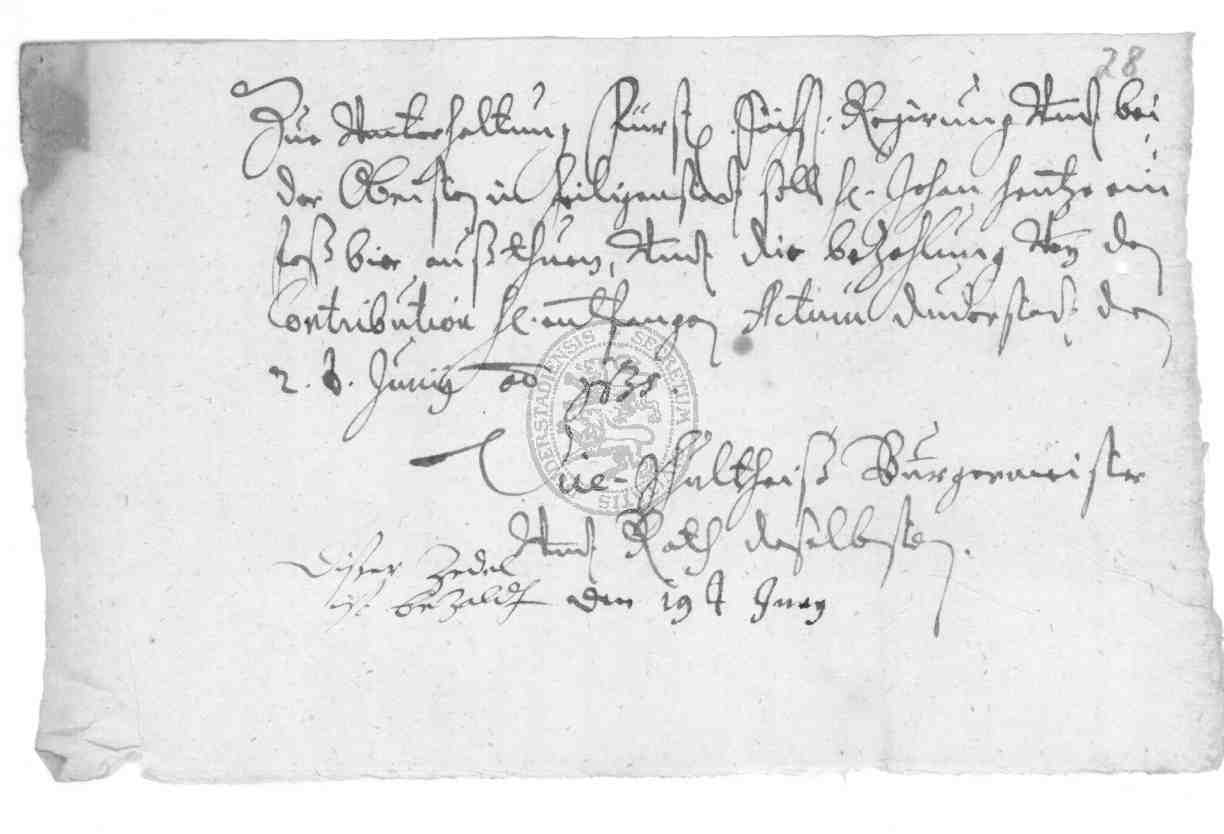 28
Zue Unterhaltung Fürstl. Sächs: Regirung Undt bei
der Obristen in Heiligenstadt soll H. Johan Hentze ein
faß bier außthuen, Undt die bezahlung Von der
Contribution H. entfangen Actum Duderstadt den
2. Junij Ao 1635.
Schultheiß Bürgermeister
Undt Rath daselbsten.
Disser Zedel
ist bezaldt den 19 t Juny
DERSTADIENSIS SECRETUM